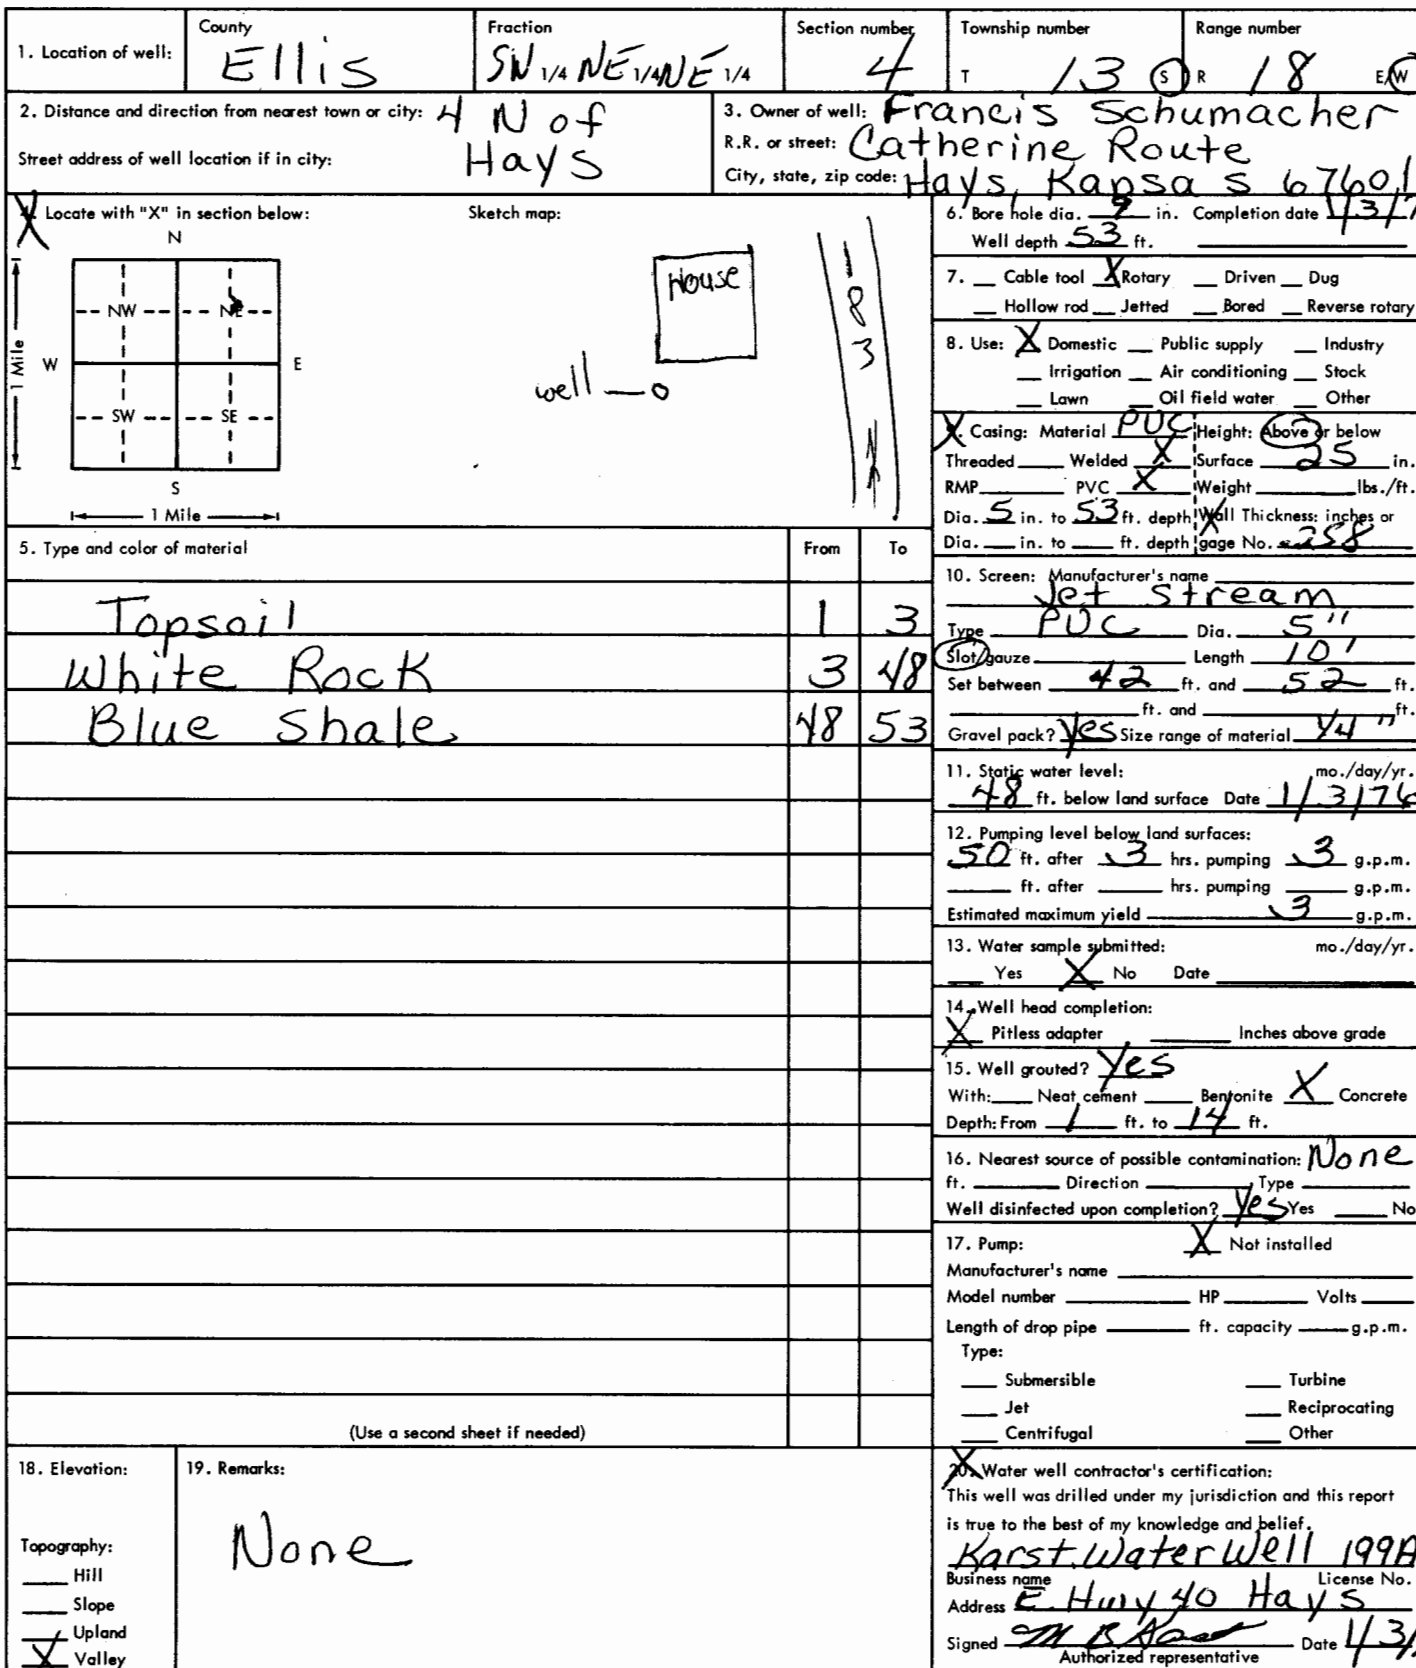 1. Location of well: County Ellis Fraction SW 1/4 NE 1/4 NE 1/4 Section number 4 Township number T 13 S Range number R 18 E/W
2. Distance and direction from nearest town or city: 4 N of Hays
Street address of well location if in city:
3. Owner of well: Francis Schumacher
R.R. or street: Catherine Route
City, state, zip code: Hays, Kansas 67601
4. Locate with "X" in section below:
N
NW NE
W E
SW SE
S
1 Mile
1 Mile
Sketch map:
House
well
183
N
5. Type and color of material From To
Topsoil 1 3
White Rock 3 48
Blue Shale 48 53
(Use a second sheet if needed)
6. Bore hole dia. 9 in. Completion date 1/3/7
Well depth 53 ft.
7. Cable tool X Rotary Driven Dug
Hollow rod Jetted Bored Reverse rotary
8. Use: X Domestic Public supply Industry
Irrigation Air conditioning Stock
Lawn Oil field water Other
9. Casing: Material PVC Height: Above or below
Threaded Welded X Surface 25 in.
RMP PVC X Weight lbs./ft.
Dia. 5 in. to 53 ft. depth Wall Thickness: inches or
Dia. in. to ft. depth gage No. .258
10. Screen: Manufacturer's name
Jet Stream
Type PVC Dia. 5"
Slot/gauze Length 10'
Set between 42 ft. and 52 ft.
ft. and ft.
Gravel pack? Yes Size range of material 1/4"
11. Static water level: mo./day/yr.
48 ft. below land surface Date 1/3/76
12. Pumping level below land surfaces:
50 ft. after 3 hrs. pumping 3 g.p.m.
ft. after hrs. pumping g.p.m.
Estimated maximum yield 3 g.p.m.
13. Water sample submitted: mo./day/yr.
Yes X No Date
14. Well head completion:
X Pitless adapter Inches above grade
15. Well grouted? Yes
With: Neat cement Bentonite X Concrete
Depth: From 1 ft. to 14 ft.
16. Nearest source of possible contamination: None
ft. Direction Type
Well disinfected upon completion? Yes Yes No
17. Pump: X Not installed
Manufacturer's name
Model number HP Volts
Length of drop pipe ft. capacity g.p.m.
Type:
Submersible Turbine
Jet Reciprocating
Centrifugal Other
18. Elevation:
Topography:
Hill
Slope
Upland
X Valley
19. Remarks:
None
20. Water well contractor's certification:
This well was drilled under my jurisdiction and this report
is true to the best of my knowledge and belief.
Karst Water Well 199A
Business name License No.
Address E. Hwy 40 Hays
Signed M B Karst Date 1/3/
Authorized representative